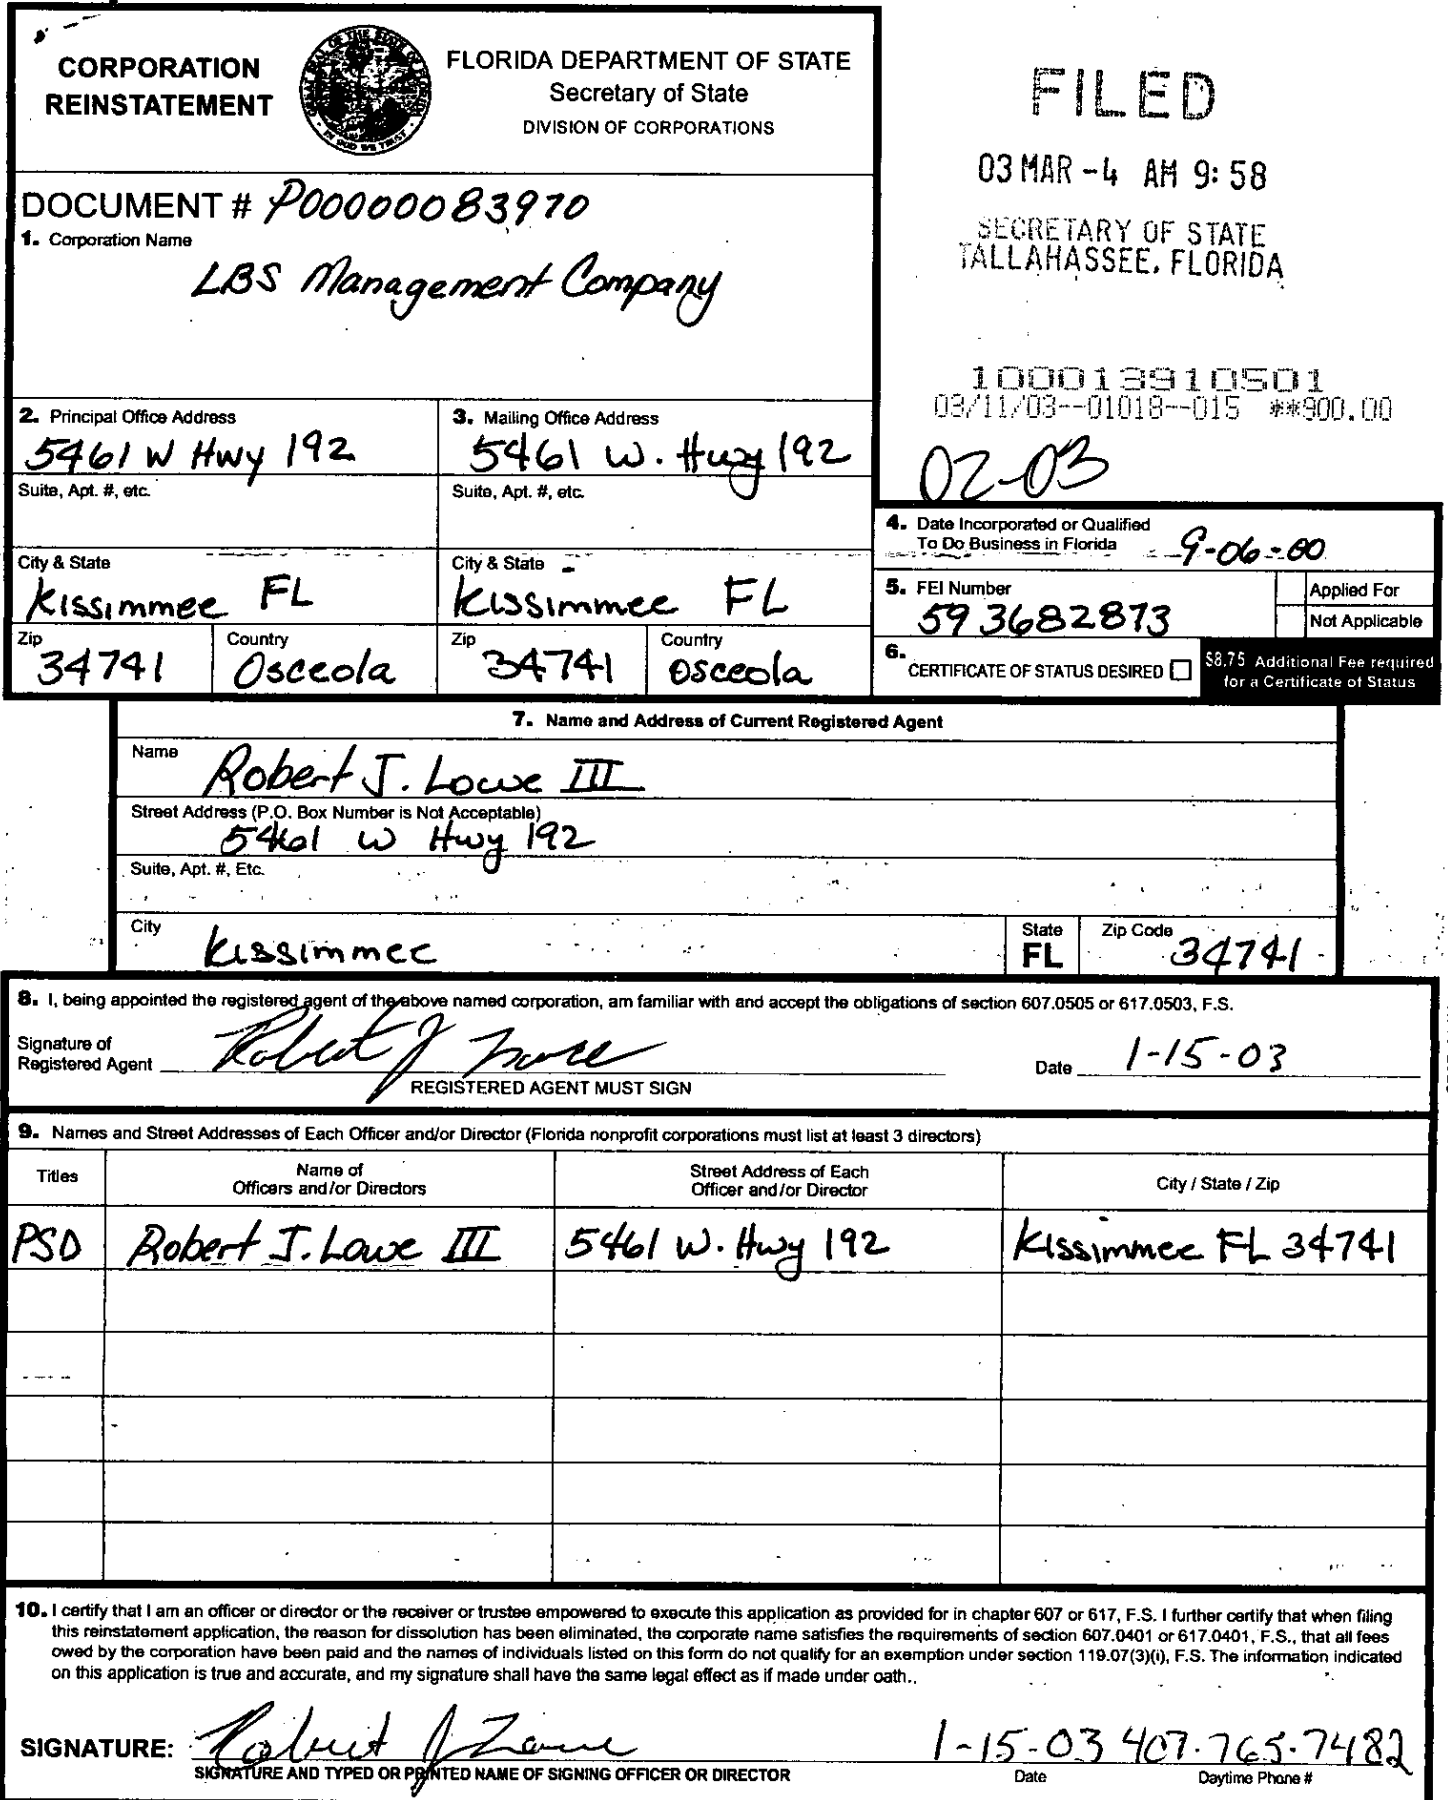 CORPORATION
REINSTATEMENT
FLORIDA DEPARTMENT OF STATE
Secretary of State
DIVISION OF CORPORATIONS
FILED
03 MAR -4 AM 9:58
SECRETARY OF STATE
TALLAHASSEE, FLORIDA
DOCUMENT # P00000083970
1. Corporation Name
LBS Management Company
100013910501
03/11/03--01018--015 **900.00
02-03
2. Principal Office Address
5461 W Hwy 192
3. Mailing Office Address
5461 W. Hwy 192
Suite, Apt. #, etc.
Suite, Apt. #, etc.
City & State
Kissimmee FL
City & State
Kissimmee FL
Zip
34741
Country
Osceola
Zip
34741
Country
Osceola
4. Date Incorporated or Qualified
To Do Business in Florida 9-06-00
5. FEI Number
593682873
Applied For
Not Applicable
6.
CERTIFICATE OF STATUS DESIRED
$8.75 Additional Fee required
for a Certificate of Status
7. Name and Address of Current Registered Agent
Name
Robert J. Lowe III
Street Address (P.O. Box Number is Not Acceptable)
5461 W Hwy 192
Suite, Apt. #, Etc.
City
Kissimmee
State
FL
Zip Code
34741
8. I, being appointed the registered agent of the above named corporation, am familiar with and accept the obligations of section 607.0505 or 617.0503, F.S.
Signature of
Registered Agent Robert J Lowe
REGISTERED AGENT MUST SIGN
Date 1-15-03
9. Names and Street Addresses of Each Officer and/or Director (Florida nonprofit corporations must list at least 3 directors)
Titles
Name of
Officers and/or Directors
Street Address of Each
Officer and/or Director
City / State / Zip
PSD Robert J. Lowe III 5461 W. Hwy 192 Kissimmee FL 34741
10. I certify that I am an officer or director or the receiver or trustee empowered to execute this application as provided for in chapter 607 or 617, F.S. I further certify that when filing
this reinstatement application, the reason for dissolution has been eliminated, the corporate name satisfies the requirements of section 607.0401 or 617.0401, F.S., that all fees
owed by the corporation have been paid and the names of individuals listed on this form do not qualify for an exemption under section 119.07(3)(i), F.S. The information indicated
on this application is true and accurate, and my signature shall have the same legal effect as if made under oath..
SIGNATURE: Robert J Lowe 1-15-03 407.765.7482
SIGNATURE AND TYPED OR PRINTED NAME OF SIGNING OFFICER OR DIRECTOR
Date
Daytime Phone #